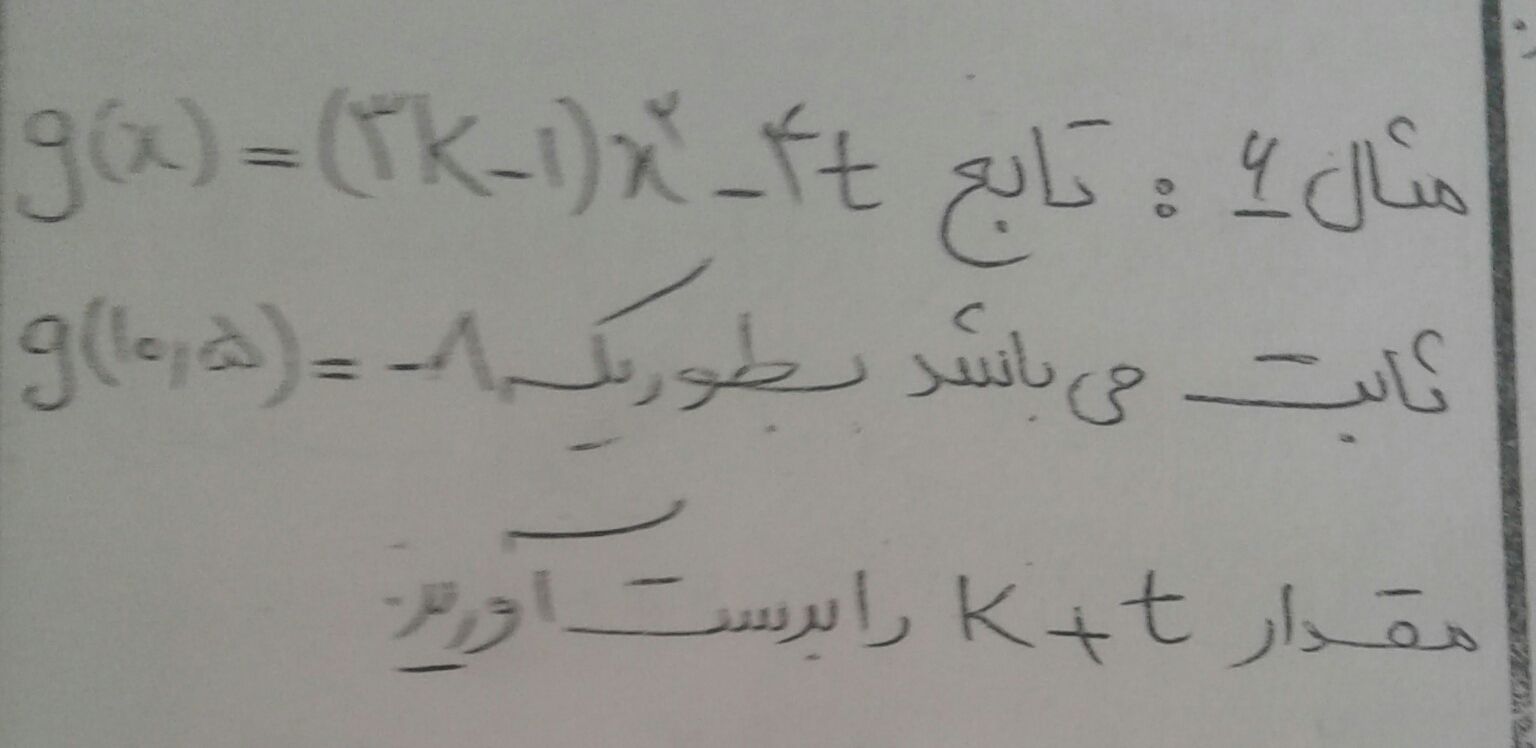 مثال ۶ : تابع g(x) = (۳k-۱)x² - ۴t
ثابت می باشد بطوریکه g(۱۰,۵) = -۸
مقدار k + t را بدست آورید.